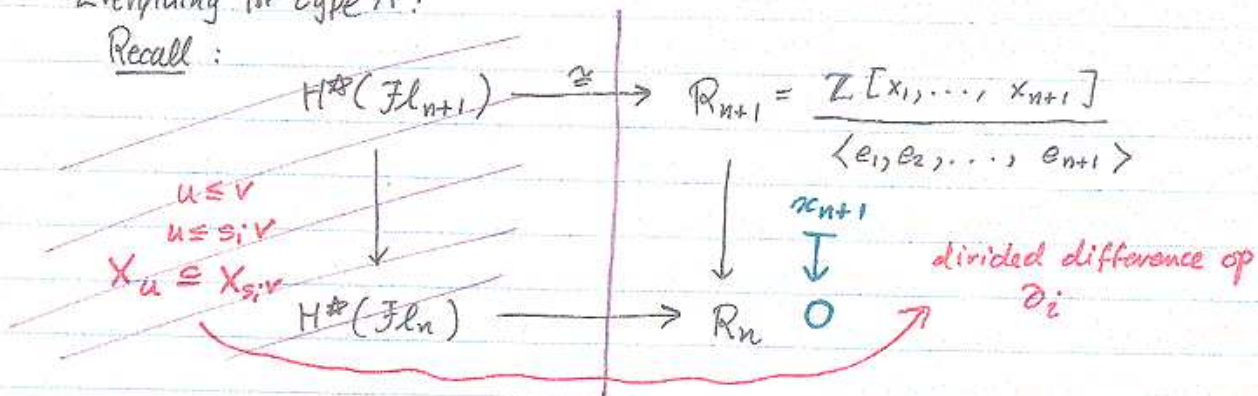 Everything for type A.
Recall :
H*(Fl_{n+1}) ≅→ R_{n+1} = Z[x_1, ..., x_{n+1}] / ⟨e_1, e_2, ..., e_{n+1}⟩
u ≤ v
u ≤ s_i v
X_u ⊆ X_{s_i v}
x_{n+1}
↦
0
divided difference op
∂_i
H*(Fl_n) → R_n